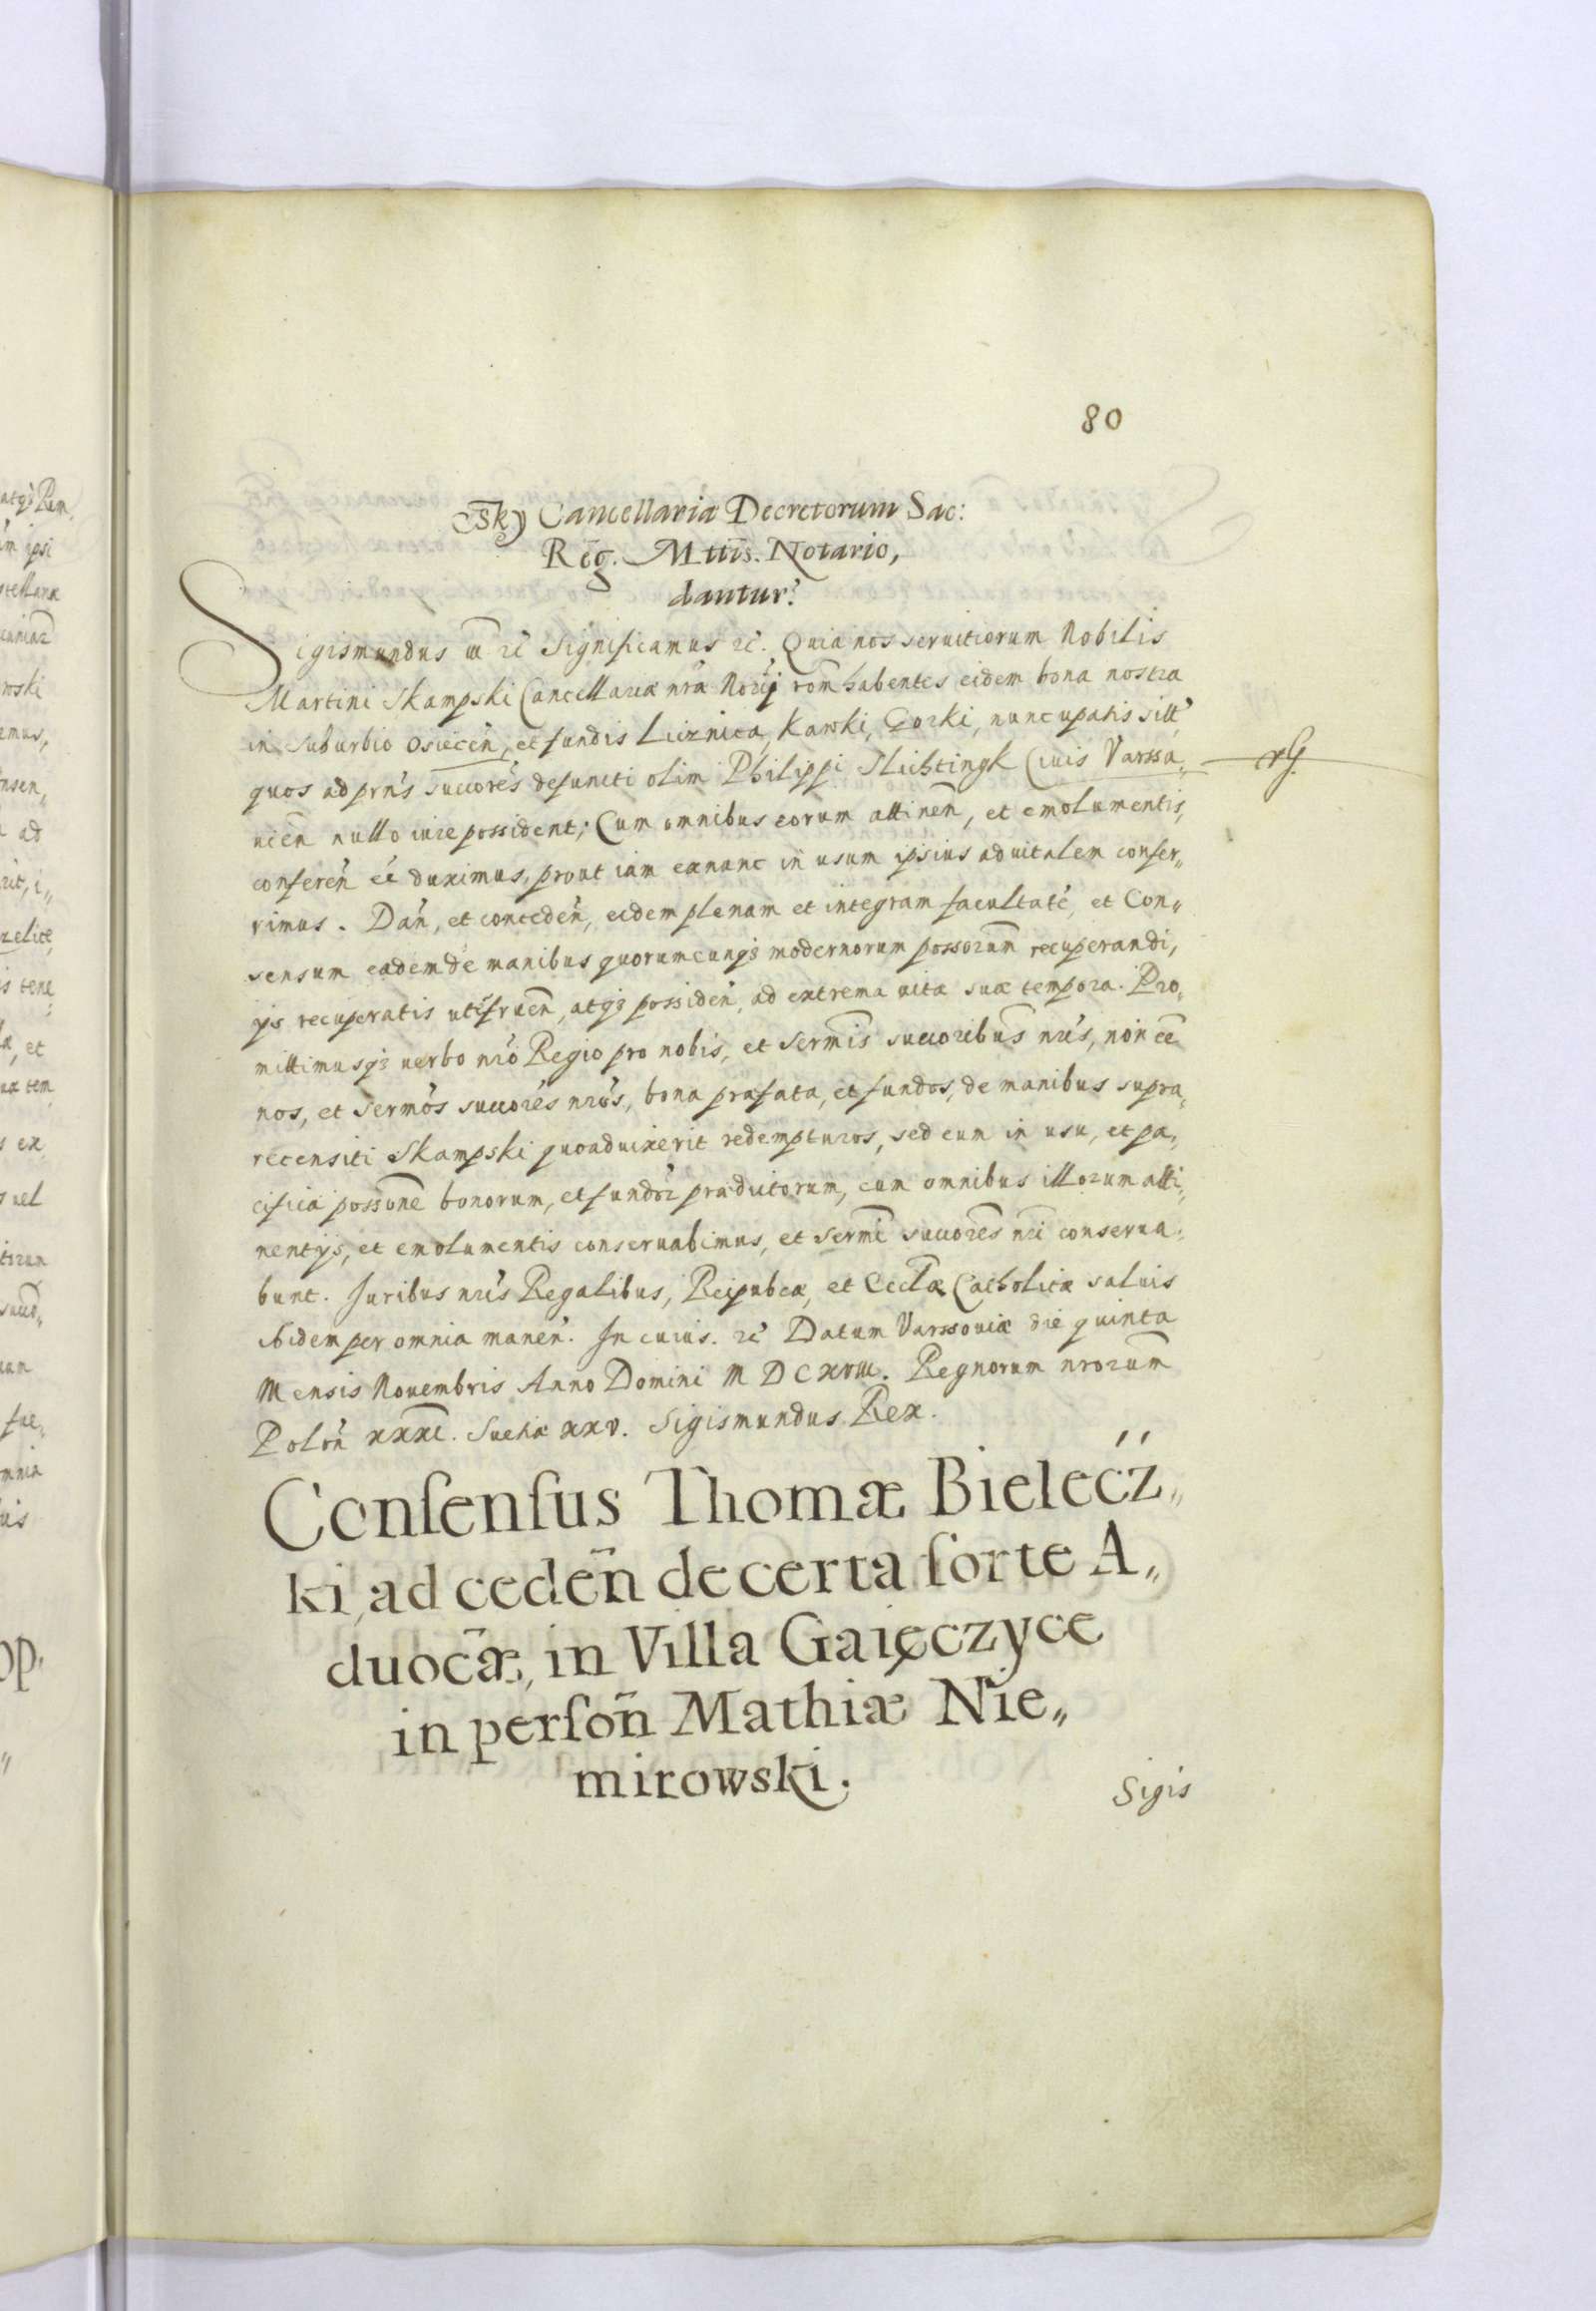 80
sky Cancellariæ Decretorum Sac:
Reg. Mttis. Notario,
dantur.
Sigismundus III etc Significamus etc. Quia nos seruitiorum Nobilis
Martini Skampski Cancellariæ nrã Norij rom̃ habentes eidem bona nostra
in suburbio Osiecen̄, et fundis Luznica, Kawki, Gorki, nuncupatis sitt̃
quos ad prñs succores̃ defuncti olim Philippi Slichtingk Ciuis Varssa„
uien̄ nullo iure possident; Cum omnibus eorum attinen̄, et emolumentis,
conferen̄ ee duximus, prout iam exnunc in usum ipsius aduitalem confer„
rimus. Dan̄, et conceden̄, eidem plenam et integram facultatẽ, et Con„
sensum eadem de manibus quorumcunq3 modernorum possorum̃ recuperandi,
ijs recuperatis utifruen̄, atq3 possiden̄, ad extrema uitæ suæ tempora. Pro„
mittimusq3 uerbo nrõ Regio pro nobis, et Sermis̃ succoribus̃ nrĩs, non eẽ
nos, et Sermos̃ succores̃ nrõs, bona præfata, et fundos, de manibus supra„
recensiti Skampski quoaduixerit redempturos, sed eum in usu, et pa„
cifica possone̅ bonorum, et fundor̃ prædictorum, cum omnibus illorum atti„
nentijs, et emolumentis conseruabimus, et Sermĩ succores̃ nrĩ conserua„
bunt. Juribus nrĩs Regalibus, Reipubcæ, et Ecclæ̃ Catholicæ saluis
ibidem per omnia manen̄. In cuius. etc Datum Varssouiæ die quinta
Mensis Nouembris Anno Domini MDCXVIII. Regnorum nrorum̃
Polon̄ XXXI. Sueciæ XXV. Sigismundus Rex.
Conſenſus Thomæ Bielecz„
ki, ad ceden̄ de certa ſorte A„
duocæ̃, in Villa Gaięczyce
in perſon̄ Mathiæ Nie„
mirowski.
Sigis